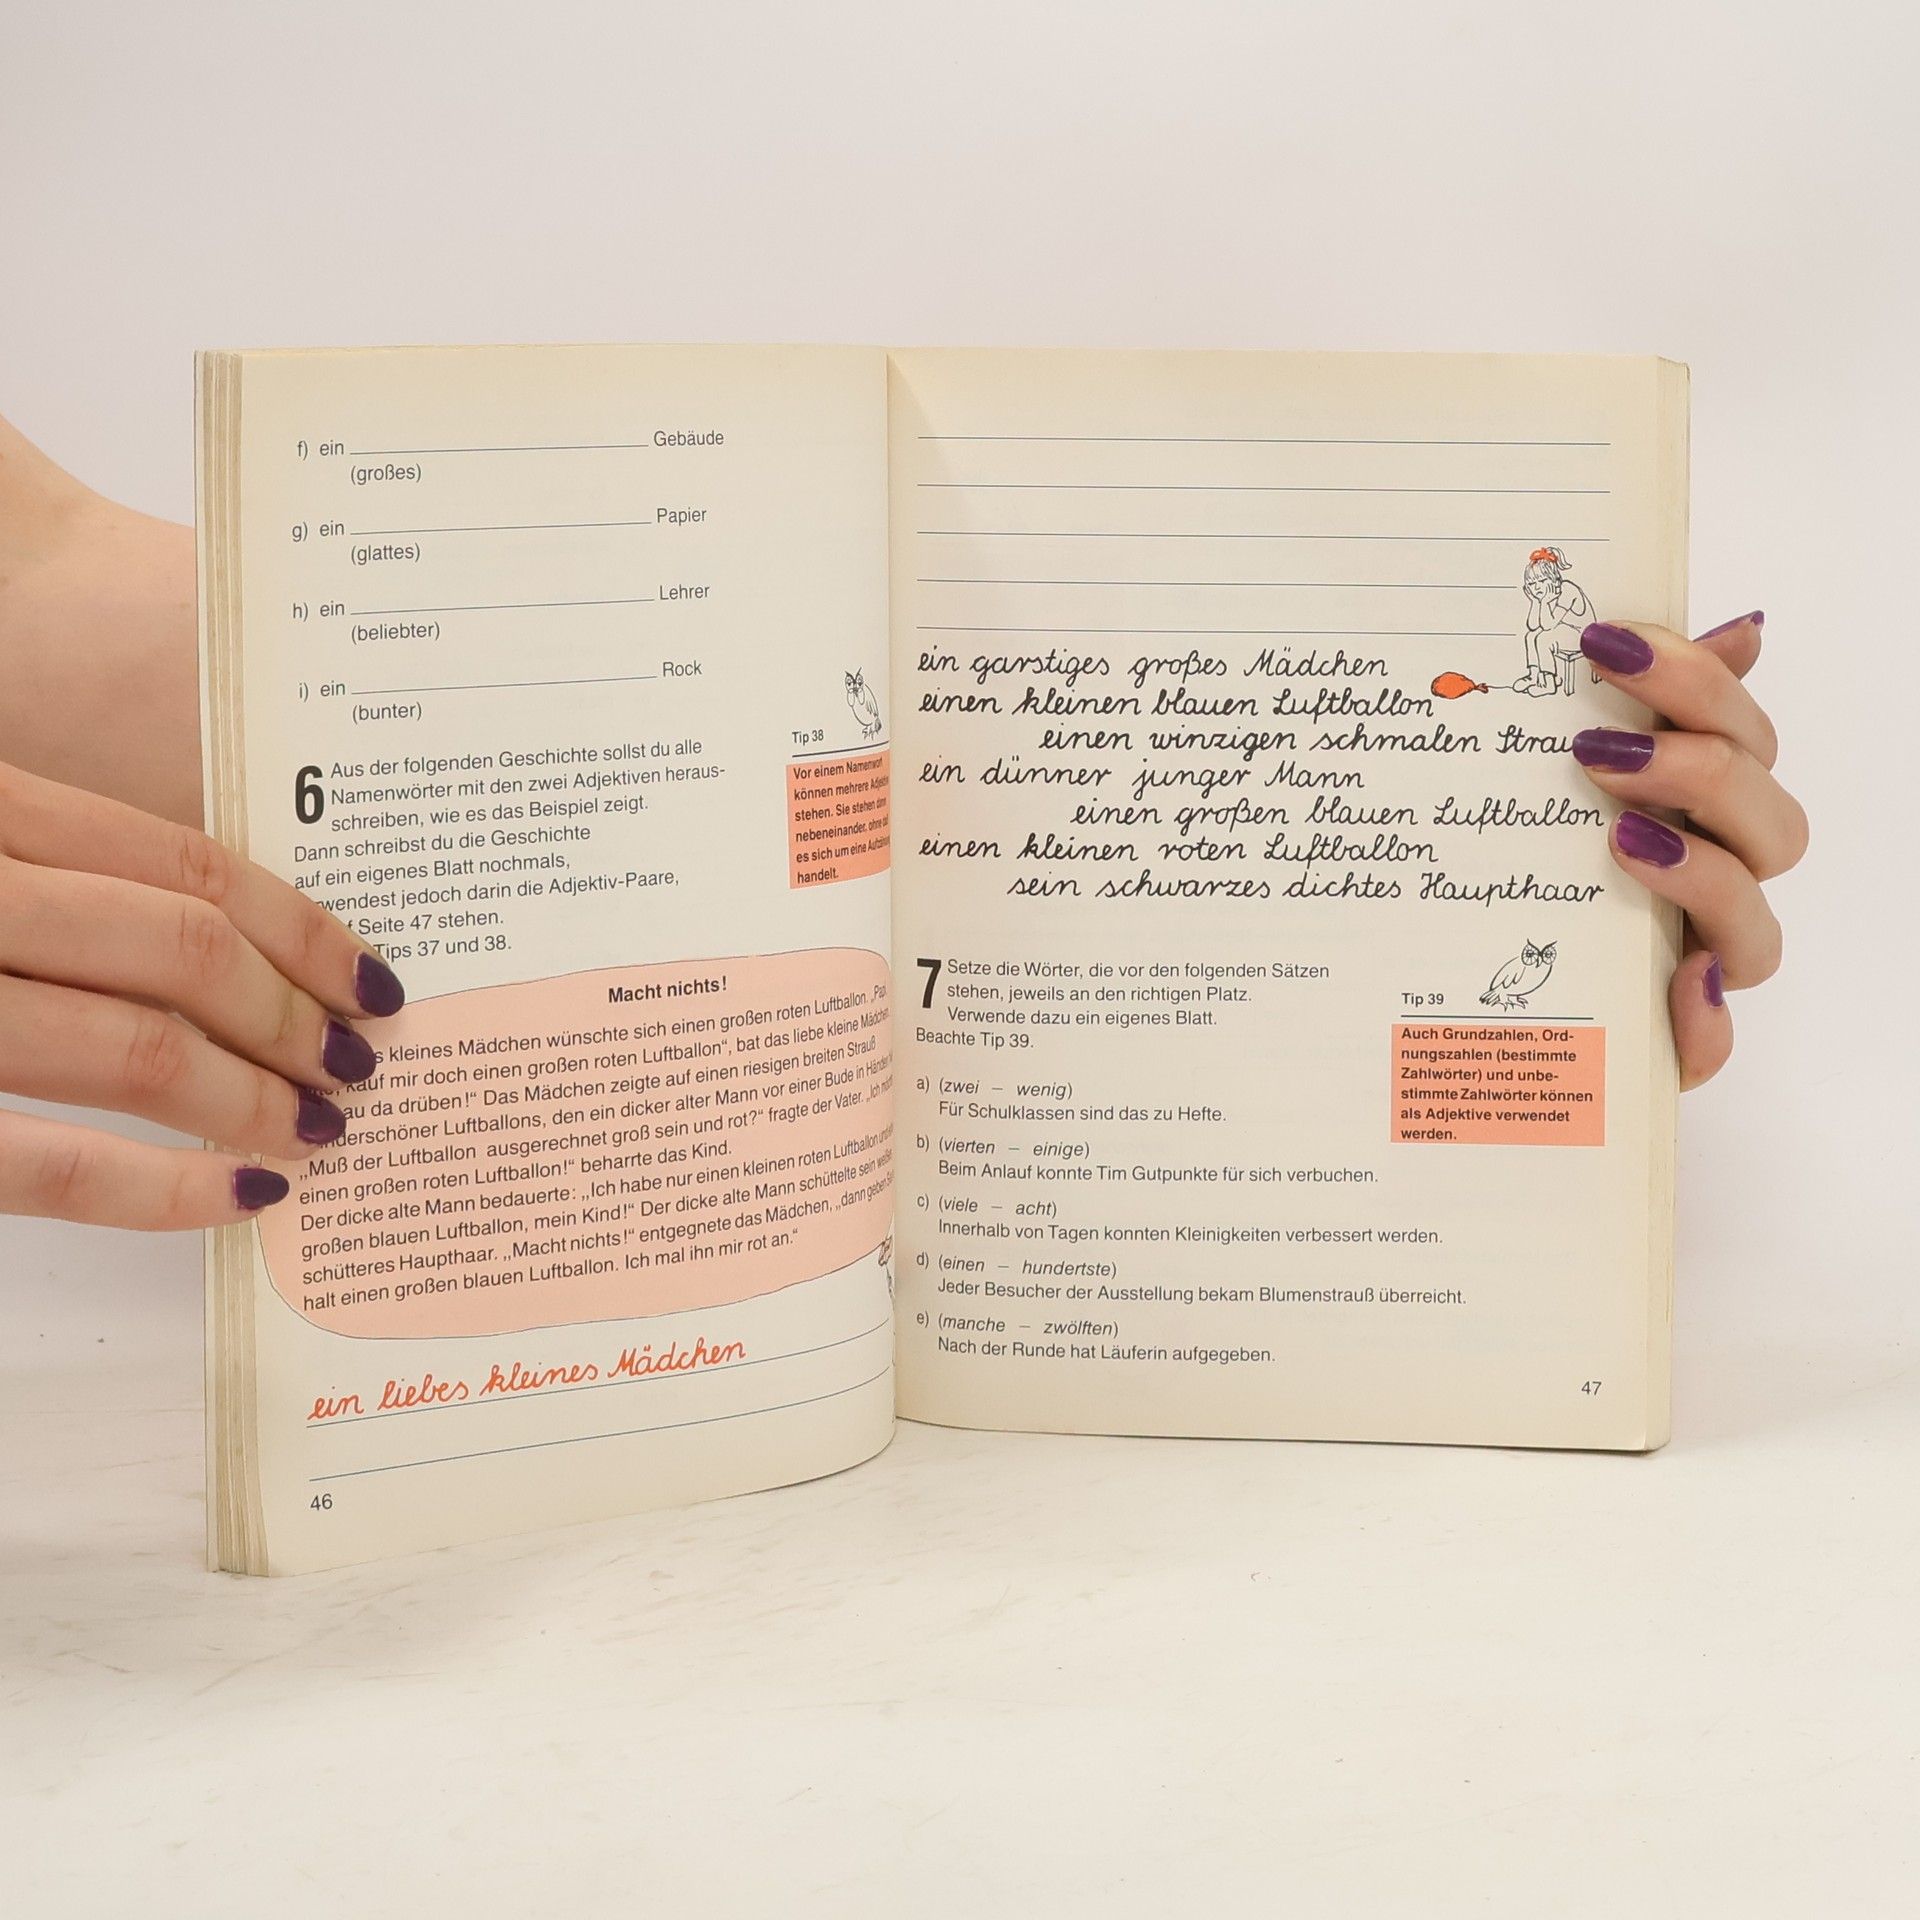 f) ein Gebäude
(großes)
g) ein Papier
(glattes)
h) ein Lehrer
(beliebter)
i) ein Rock
(bunter)
6 Aus der folgenden Geschichte sollst du alle
Namenwörter mit den zwei Adjektiven heraus-
schreiben, wie es das Beispiel zeigt.
Dann schreibst du die Geschichte
auf ein eigenes Blatt nochmals,
wendest jedoch darin die Adjektiv-Paare,
Seite 47 stehen.
Tips 37 und 38.
Tip 38
Vor einem Namenwort
können mehrere Adjektive
stehen. Sie stehen dann
nebeneinander, ohne daß
es sich um eine Aufzählung
handelt.
Macht nichts!
s kleines Mädchen wünschte sich einen großen roten Luftballon. „Papi,
kauf mir doch einen großen roten Luftballon“, bat das liebe kleine Mädchen.
au da drüben!“ Das Mädchen zeigte auf einen riesigen breiten Strauß
derschöner Luftballons, den ein dicker alter Mann vor einer Bude in Händen
„Muß der Luftballon ausgerechnet groß sein und rot?“ fragte der Vater. „Ich
einen großen roten Luftballon!“ beharrte das Kind.
Der dicke alte Mann bedauerte: „Ich habe nur einen kleinen roten Luftballon und
großen blauen Luftballon, mein Kind!“ Der dicke alte Mann schüttelte sein weißes
schütteres Haupthaar. „Macht nichts!“ entgegnete das Mädchen, „dann geben
halt einen großen blauen Luftballon. Ich mal ihn mir rot an.“
ein liebes kleines Mädchen
46
ein garstiges großes Mädchen
einen kleinen blauen Luftballon
einen winzigen schmalen Strau
ein dünner junger Mann
einen großen blauen Luftballon
einen kleinen roten Luftballon
sein schwarzes dichtes Haupthaar
7 Setze die Wörter, die vor den folgenden Sätzen
stehen, jeweils an den richtigen Platz.
Verwende dazu ein eigenes Blatt.
Beachte Tip 39.
Tip 39
Auch Grundzahlen, Ord-
nungszahlen (bestimmte
Zahlwörter) und unbe-
stimmte Zahlwörter können
als Adjektive verwendet
werden.
a) (zwei – wenig)
Für Schulklassen sind das zu Hefte.
b) (vierten – einige)
Beim Anlauf konnte Tim Gutpunkte für sich verbuchen.
c) (viele – acht)
Innerhalb von Tagen konnten Kleinigkeiten verbessert werden.
d) (einen – hundertste)
Jeder Besucher der Ausstellung bekam Blumenstrauß überreicht.
e) (manche – zwölften)
Nach der Runde hat Läuferin aufgegeben.
47